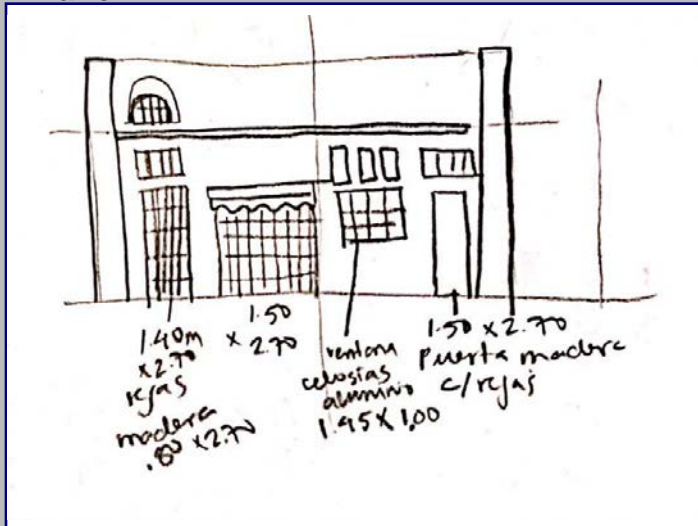 1.40m
x 2.70
rejas
madera
.80 x 2.70
1.50
x 2.70
ventana
celosias
aluminio
1.95 x 1.00
1.50 x 2.70
puerta madera
c/rejas